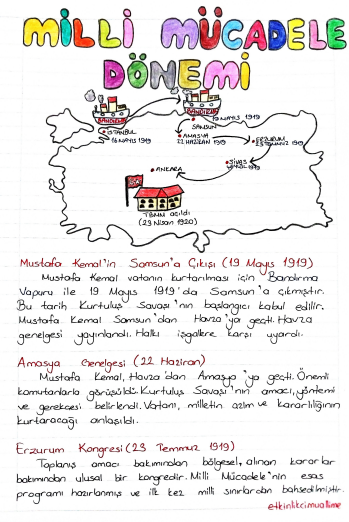 MİLLİ MÜCADELE
DÖNEMİ
BANDIRMA
BANDIRMA
İSTANBUL
16 MAYIS 1919
19 MAYIS 1919
SAMSUN
AMASYA
22 HAZİRAN 1919
ERZURUM
23 TEMMUZ 1919
SİVAS
4 EYLÜL 1919
ANKARA
TBMM açıldı
(23 Nisan 1920)
Mustafa Kemal'in Samsun'a Çıkışı (19 Mayıs 1919)
Mustafa Kemal vatanın kurtarılması için Bandırma
Vapuru ile 19 Mayıs 1919'da Samsun'a çıkmıştır.
Bu tarih Kurtuluş Savaşı'nın başlangıcı kabul edilir.
Mustafa Kemal Samsun'dan Havza'ya geçti. Havza
genelgesi yayınlandı. Halkı işgallere karşı uyardı.
Amasya Genelgesi (22 Haziran)
Mustafa Kemal, Havza'dan Amasya'ya geçti. Önemli
komutanlarla görüşüldü. Kurtuluş Savaşı'nın amacı, yöntemi
ve gerekçesi belirlendi. Vatanı, milletin azim ve kararlılığının
kurtaracağı anlaşıldı.
Erzurum Kongresi (23 Temmuz 1919)
Toplanış amacı bakımından bölgesel, alınan kararlar
bakımından ulusal bir kongredir. Milli Mücadele'nin esas
programı hazırlanmış ve ilk kez milli sınırlardan bahsedilmiştir.
etkinlikcimuallime